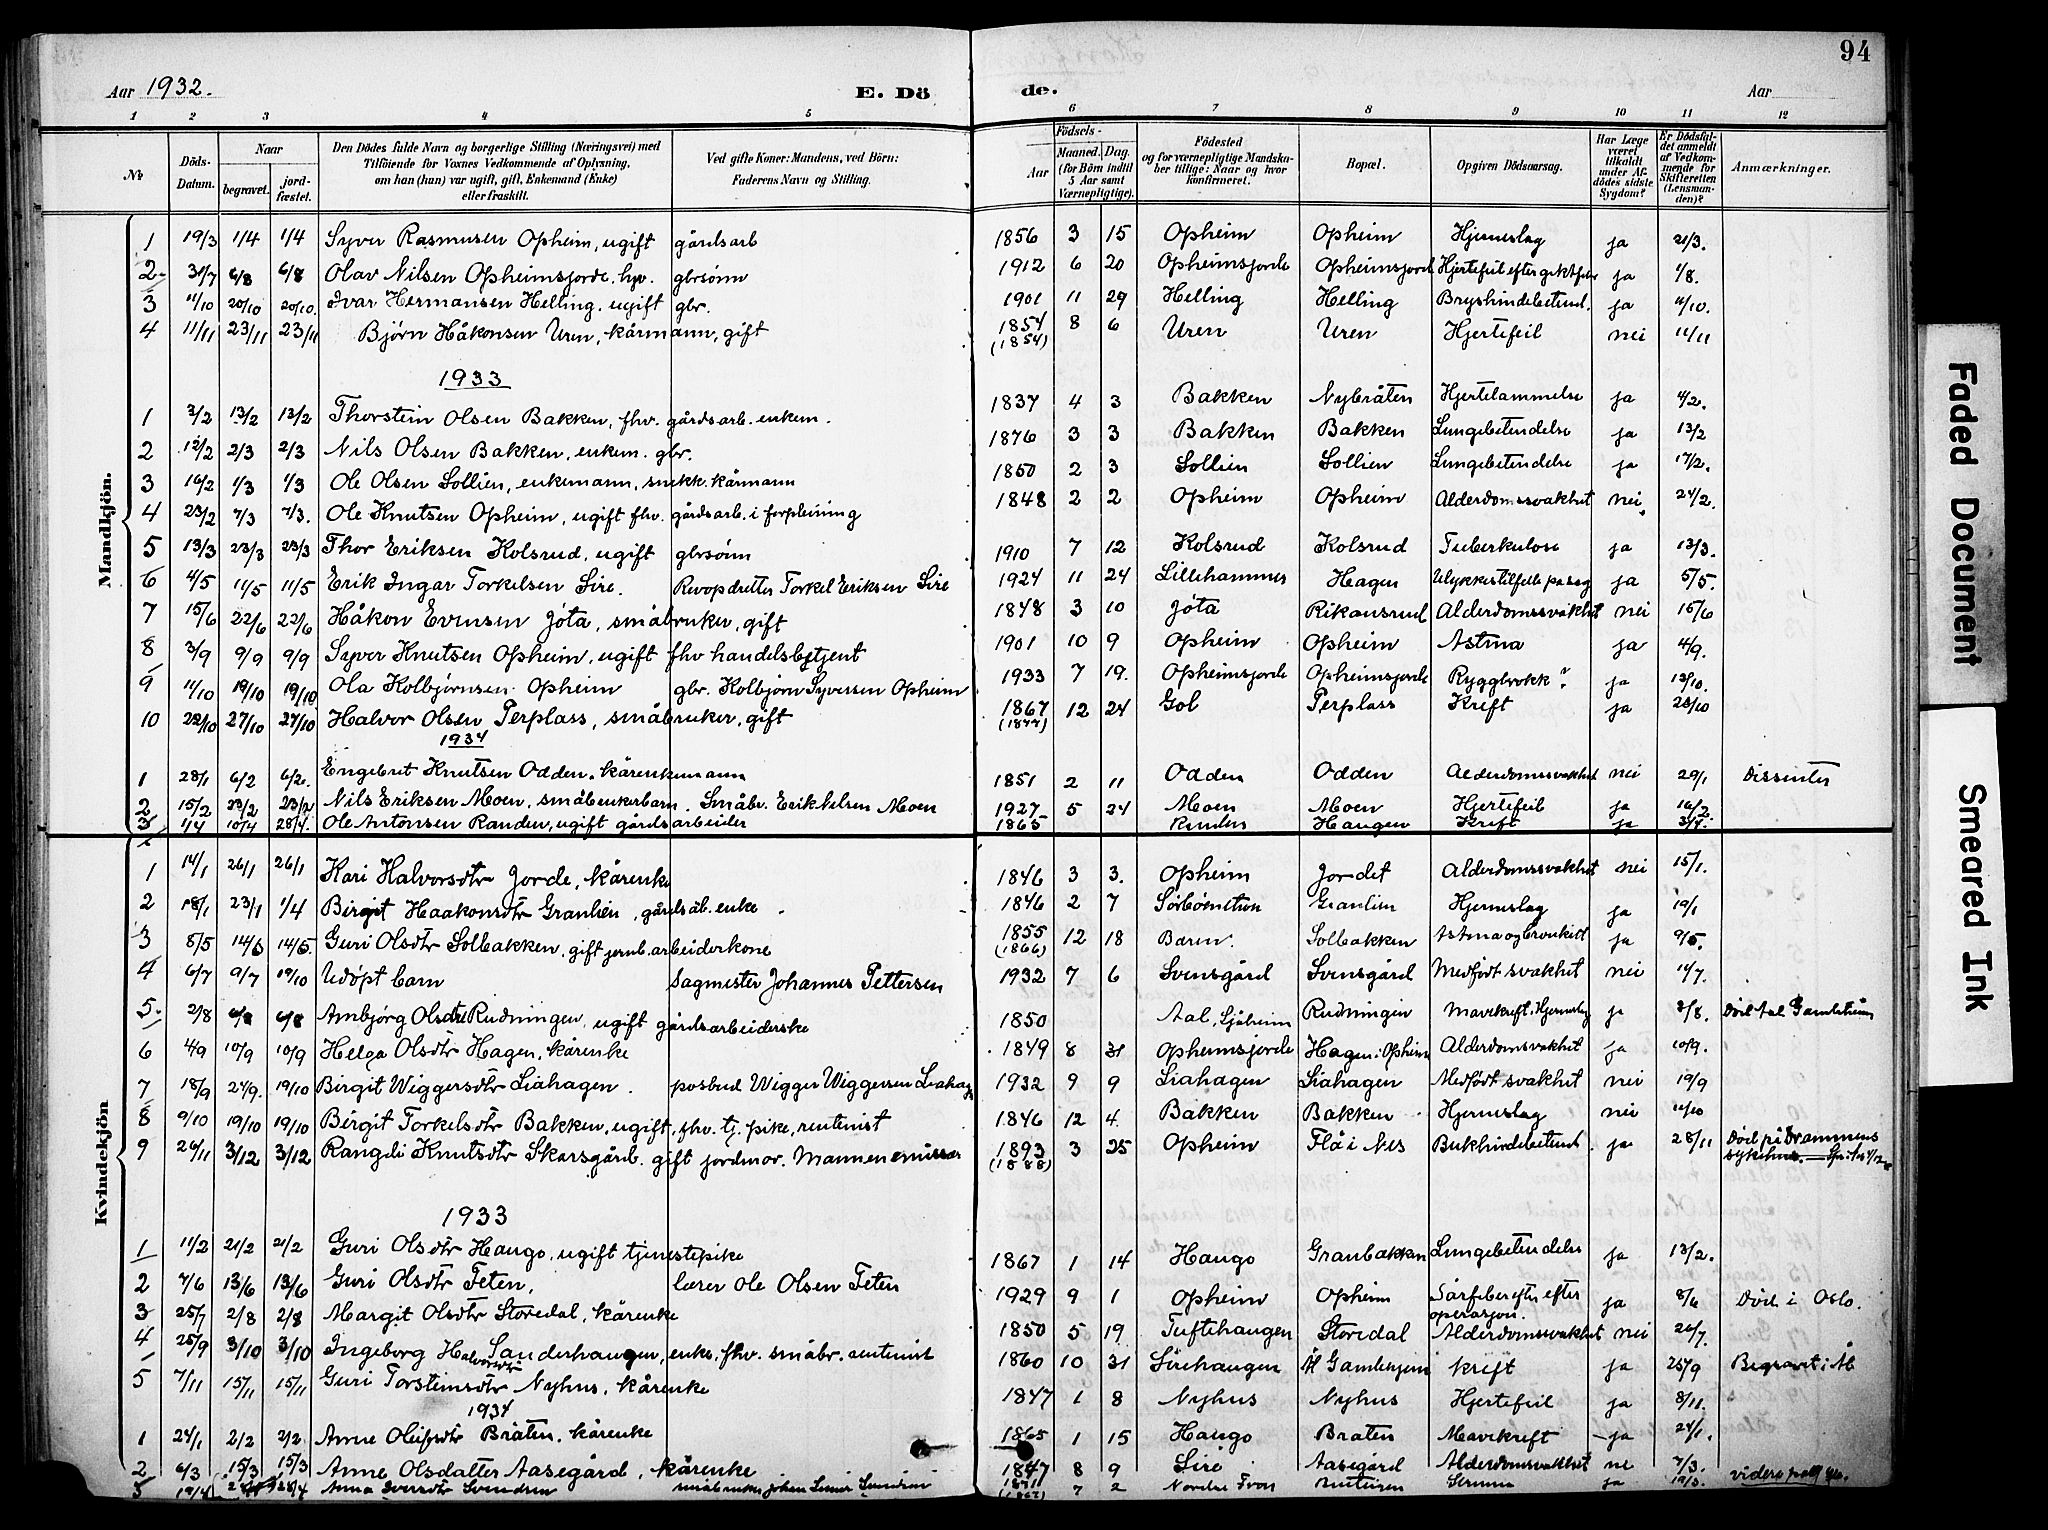 94
Aar 1932. E. Dö de. Aar
1 2 3 4 5 6 7 8 9 10 11 12
No
Döds-Datum.
Naar
begravet.
jord-fæstet.
Den Dödes fulde Navn og borgerlige Stilling (Næringsvei) med
Tilföiende for Voxnes Vedkommende af Oplysning,
om han (hun) var ugift, gift, Enkemand (Enke)
eller fraskilt.
Ved gifte Koner: Mandens, ved Börn:
Faderens Navn og Stilling.
Födsels-
Aar
Maaned. Dag.
(for Börn indtil
5 Aar samt
Værnepligtige).
Födested
og for værnepligtige Mandska-
ber tillige: Naar og hvor
konfirmeret.
Bopæl.
Opgiven Dödsaarsag.
Har Læge
været
tilkaldt
under Af-
dödes sidste
Sygdom?
Er Dödsfal-
det anmeldt
af Vedkom-
mende for
Skifteretten
(Lensman-
den)?
Anmærkninger.
Mandkjön.
1 19/3 1/4 1/4 Syver Rasmusen Opheim, ugift gårdsarb 1856 3 15 Opheim Opheim Hjerneslag ja 21/3.
2 31/7 6/8 6/8 Olav Nilsen Opheimsjorde, gbrsönn 1912 6 20 Opheimsjorde Opheimsjord Hjertefeil efter ja 1/8.
3 11/10 20/10 20/10. Ivar Hermansen Helling, ugift gbr. 1901 11 29 Helling Helling ja 11/10.
4 11/11 23/11 23/11 Bjørn Håkonsen Uren, kårmann, gift 1854 (1854) 8 6 Uren Uren Hjertefeil nei 11/11
1933
1 3/2 13/2 13/2 Thorstein Olsen Bakken, fhv. gårdsarb. enkem. 1837 4 3 Bakken Nybråten Hjertelammelse ja 4/2.
2 12/2 2/3 2/3 Nils Olsen Bakken, enkem. gbr. 1876 3 3 Bakken Bakken Lungebetendelse ja 13/2
3 16/2 1/3 1/3 Ole Olsen Sollien, enkemann, snekk. kårmann 1850 2 3 Sollien Sollien Lungebetendelse ja 17/2.
4 23/2 7/3 7/3. Ole Knutsen Opheim, ugift fhv. gårdsarb. i forpleining 1848 2 2 Opheim Opheim Alderdomssvakhet nei. 24/2.
5 13/3 23/3 23/3 Thor Eriksen Kolsrud, ugift gbrsönn 1910 7 12 Kolsrud Kolsrud Tuberkulose ja 13/3.
6 4/5 11/5 11/5 Erik Ingar Torkelsen Sire. Revopdretter Torkel Eriksen Sire 1924 11 24 Lillehammer Hagen Ulykkestilfelle på sag ja 5/5.
7 15/6 22/6 22/6 Håkon Evensen Jóta, småbruker, gift 1848 3 10 Jóta Rikansrud Alderdomssvakhet nei 15/6
8 3/9 9/9 9/9 Syver Knutsen Opheim, ugift fhv handelsbetjent 1901 10 9 Opheim Opheim Astma ja 4/9.
9 11/10 19/10 19/10 Ola Kolbjørnsen Opheim gbr. Kolbjørn Syversen Opheim 1933 7 19. Opheimsjorde Opheimsjorde Ryggbrokk? ja 13/10.
10 22/10 27/10 27/10 Halvor Olsen Perplass, småbruker, gift 1867 (1877) 12 24 Gol Perplass Kreft ja 23/10
1934
1 28/1 6/2 6/2. Engebret Knutsen Odden, kårenkemann 1851 2 11 Odden Odden Alderdomssvakhet nei 29/1 Dissenter
2 15/2 23/2 23/2 Nils Eriksen Moen, småbrukerbarn. Småbr. Erik Nilsen Moen 1927 5 24 Moen Moen Hjertefeil ja 16/2.
3 1/4 10/4 28/4. Ole Antonsen Randen, ugift gårdsarbeider 1865 Randen Haugen Kreft ja 3/4.
Kvindekjön
1 14/1 26/1 26/1 Kari Halvorsdtr Jorde, kårenke 1846 3 3. Opheim Jordet Alderdomssvakhet nei 15/1.
2 18/1 23/1 1/4 Birgit Haakonsdtr Granlien, gårdsarb. enke 1846 2 7 Granlien Hjerneslag ja 19/1
3 8/5 14/5 14/5. Guri Olsdtr Solbakken, gift jernb.arbeiderkone 1855 (1866) 12 18 Baren. Solbakken Astma og bronkitt ja 9/5.
4 6/7 9/7 19/10 Udöpt barn Sagmester Johannes Pettersen 1932 7 6 Svensgård Svensgård Medfödt svakhet nei 11/7.
5 2/8 6/8 6/8 Ambjörg Olsdtr Rudningen, ugift gårdsarbeiderske 1850 Aal, Sjåheim Rudningen Mavekreft, Hjerneslag ja 3/8. Död Aal Gamleheim
6 4/9 10/9 10/9 Helga Olsdtr Hagen, kårenke 1849 8 31 Opheimsjorde Hagen i Opheim Alderdomsvakhet ja 10/9.
7 18/9 24/9. 19/10 Birgit Wiggersdtr Liahagen. postbud Wigger Wiggersen Liahagen 1932 9 9 Liahagen Liahagen Medfödt svakhet nei 19/9
8 9/10 19/10 19/10 Birgit Torkelsdtr Bakken, ugift, fhv. tj. pike, rentenist 1846 12 4. Bakken Bakken Hjerneslag nei 11/10
9 26/11 3/12 3/12 Rangdi Knutsdtr Skarsgård. gift jordmor. Mannen emissær 1893 (1888) 3 25 Opheim Flå i Nes Bukhindebetend. ja 28/11 Död på Drammens sykehus.
1933
1 11/2 21/2 21/2 Guri Olsdtr Haugo, ugift tjenestepike 1867 1 14 Haugo Granbakken Lungebetendelse ja 13/2.
2 7/6 13/6 13/6 Guri Olsdtr Feten, lærer Ole Olsen Feten 1929 9 1 Opheim Opheim Sårfeber efter operasjon. ja 8/6 Död i Oslo.
3 25/7 2/8 2/8 Margit Olsdtr Storedal, kårenke 1850 5 19 Tuftehaugen Storedal Alderdomssvakhet nei 26/7.
4 25/9 3/10 3/10 Ingeborg Halvorsdtr Sanderhaugen, enke, fhv. småbr. rentenist 1860 10 31 Sirehaugen Ål Gamleheim kreft ja 25/9 Begravet i Ål
5 7/11 15/11 15/11 Guri Torsteinsdtr Nyhus, kårenke 1847 1 8 Nyhus Nyhus Hjertefeil ja 8/11.
1934
1 24/1 2/2 2/2 Anne Olsdtr Bråten, kårenke 1865 1 15 Haugo Bråten Mavekreft ja 24/1.
2 6/3 15/3 15/3 Anne Olsdatter Aasegård, kårenke 1847 8 9 Sire Aasegård Alderdomssvakhet nei 7/3.
3 19/4 28/4 Anna Iversdtr Svendsen 7 2 Nordre Fron Struma ja 19/3. videre
Faded Document
Smeared Ink